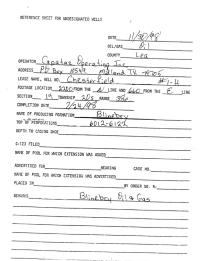 REFERENCE SHEET FOR UNDESIGNATED WELLS
DATE 11/30/98
OIL/GAS Oil
COUNTY Lea
OPERATOR Capataz Operating Inc.
ADDRESS PO Box Midland TX
LEASE NAME, WELL NO. Chesterfield #1-H
FOOTAGE LOCATION FROM THE N LINE AND 660 FROM THE E LINE
SECTION 19 TOWNSHIP 20S RANGE 39E
COMPLETION DATE 2/24/98
NAME OF PRODUCING FORMATION Blinebry
TOP OF PERFORATIONS 6012-6122
DEPTH TO CASING SHOE
C-123 FILED
NAME OF POOL FOR WHICH EXTENSION WAS ASKED
ADVERTISED FOR HEARING CASE NO.
NAME OF POOL FOR WHICH EXTENSION WAS ADVERTISED
PLACED IN BY ORDER NO. R-
REMARKS Blinebry Oil & Gas